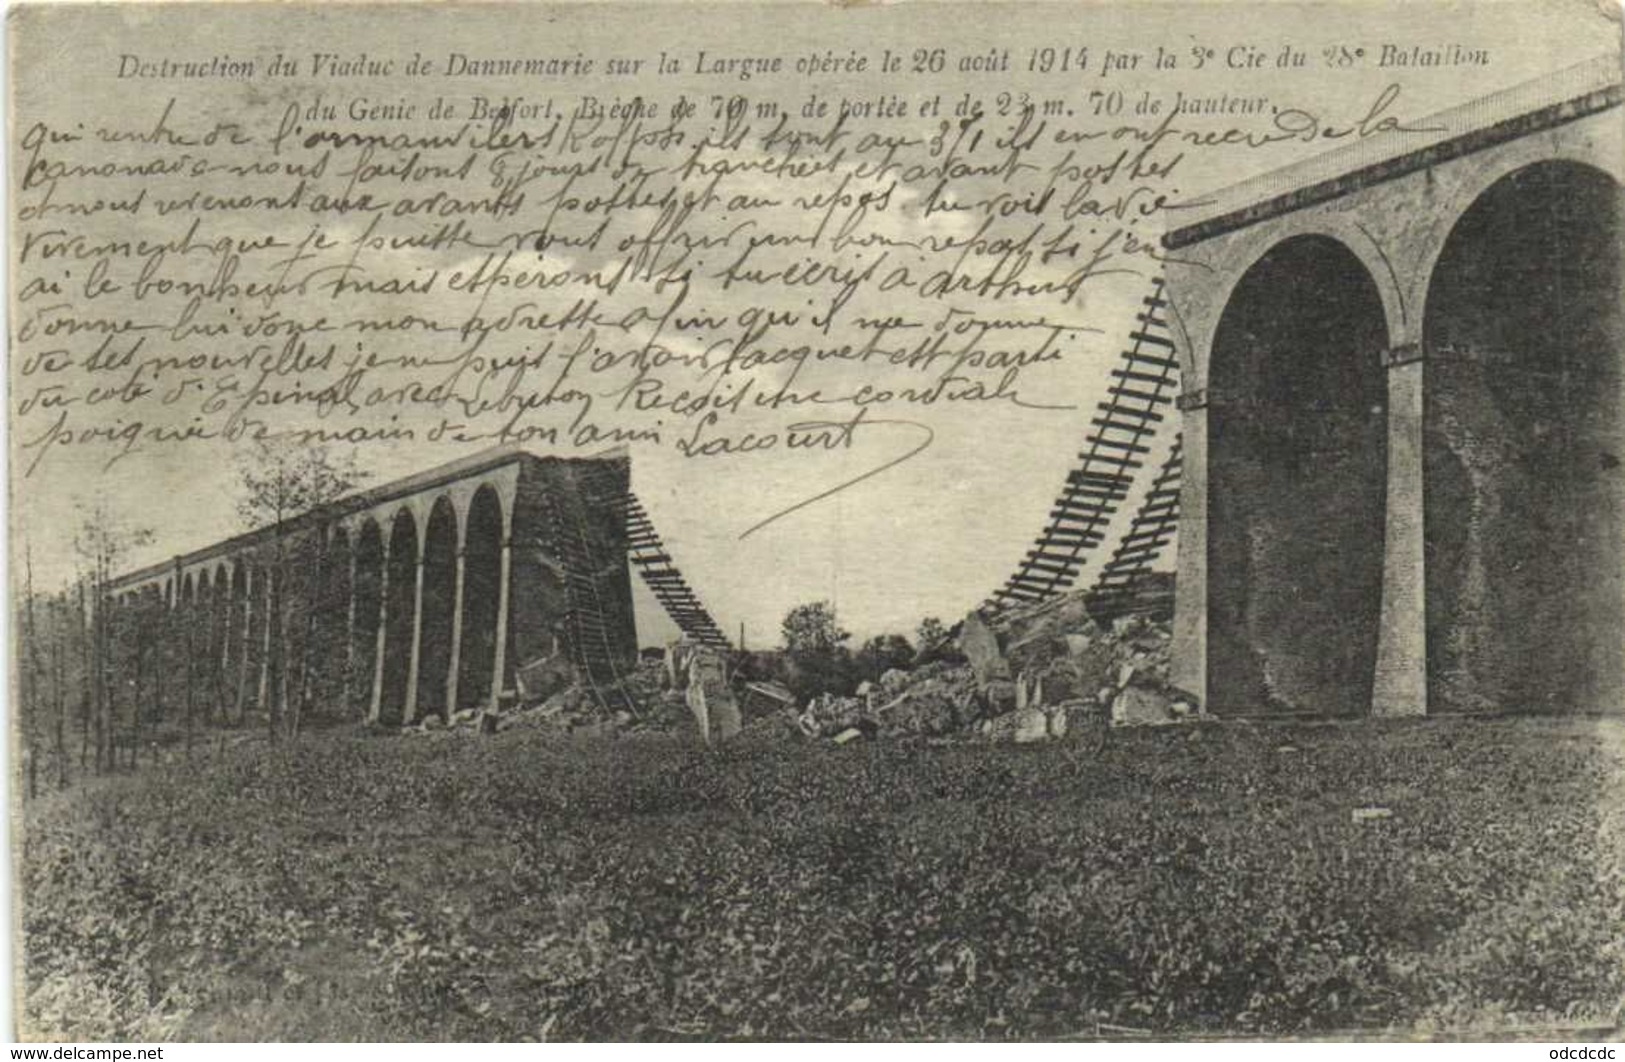 Destruction du Viaduc de Dannemarie sur la Largue opérée le 26 août 1914 par la 3e Cie du 28e Bataillon
du Genie de Belfort. Brèche de 70 m. de portée et de 23 m. 70 de hauteur.
qui rentre de l'ormanvilers Kolpps ils sont au 371 ils en ont recu de la
canonade nous faisons 8 jours de tranchées et avant postes
et nous revenont aux avants postes et au repos tu vois la vie
vivement que je puisse vous offrir un bon repas si j'en
ai le bonheur mais espéront si tu écris à arthur
donne lui donc mon adresse afin qu'il me donne
de ses nouvelles je ne puis l'avoir Jacquet est parti
du coté d'Epinal avec Lebuson Recoit une cordiale
poignée de main de ton ami Lacourt
odcdcdc
www.delcampe.net